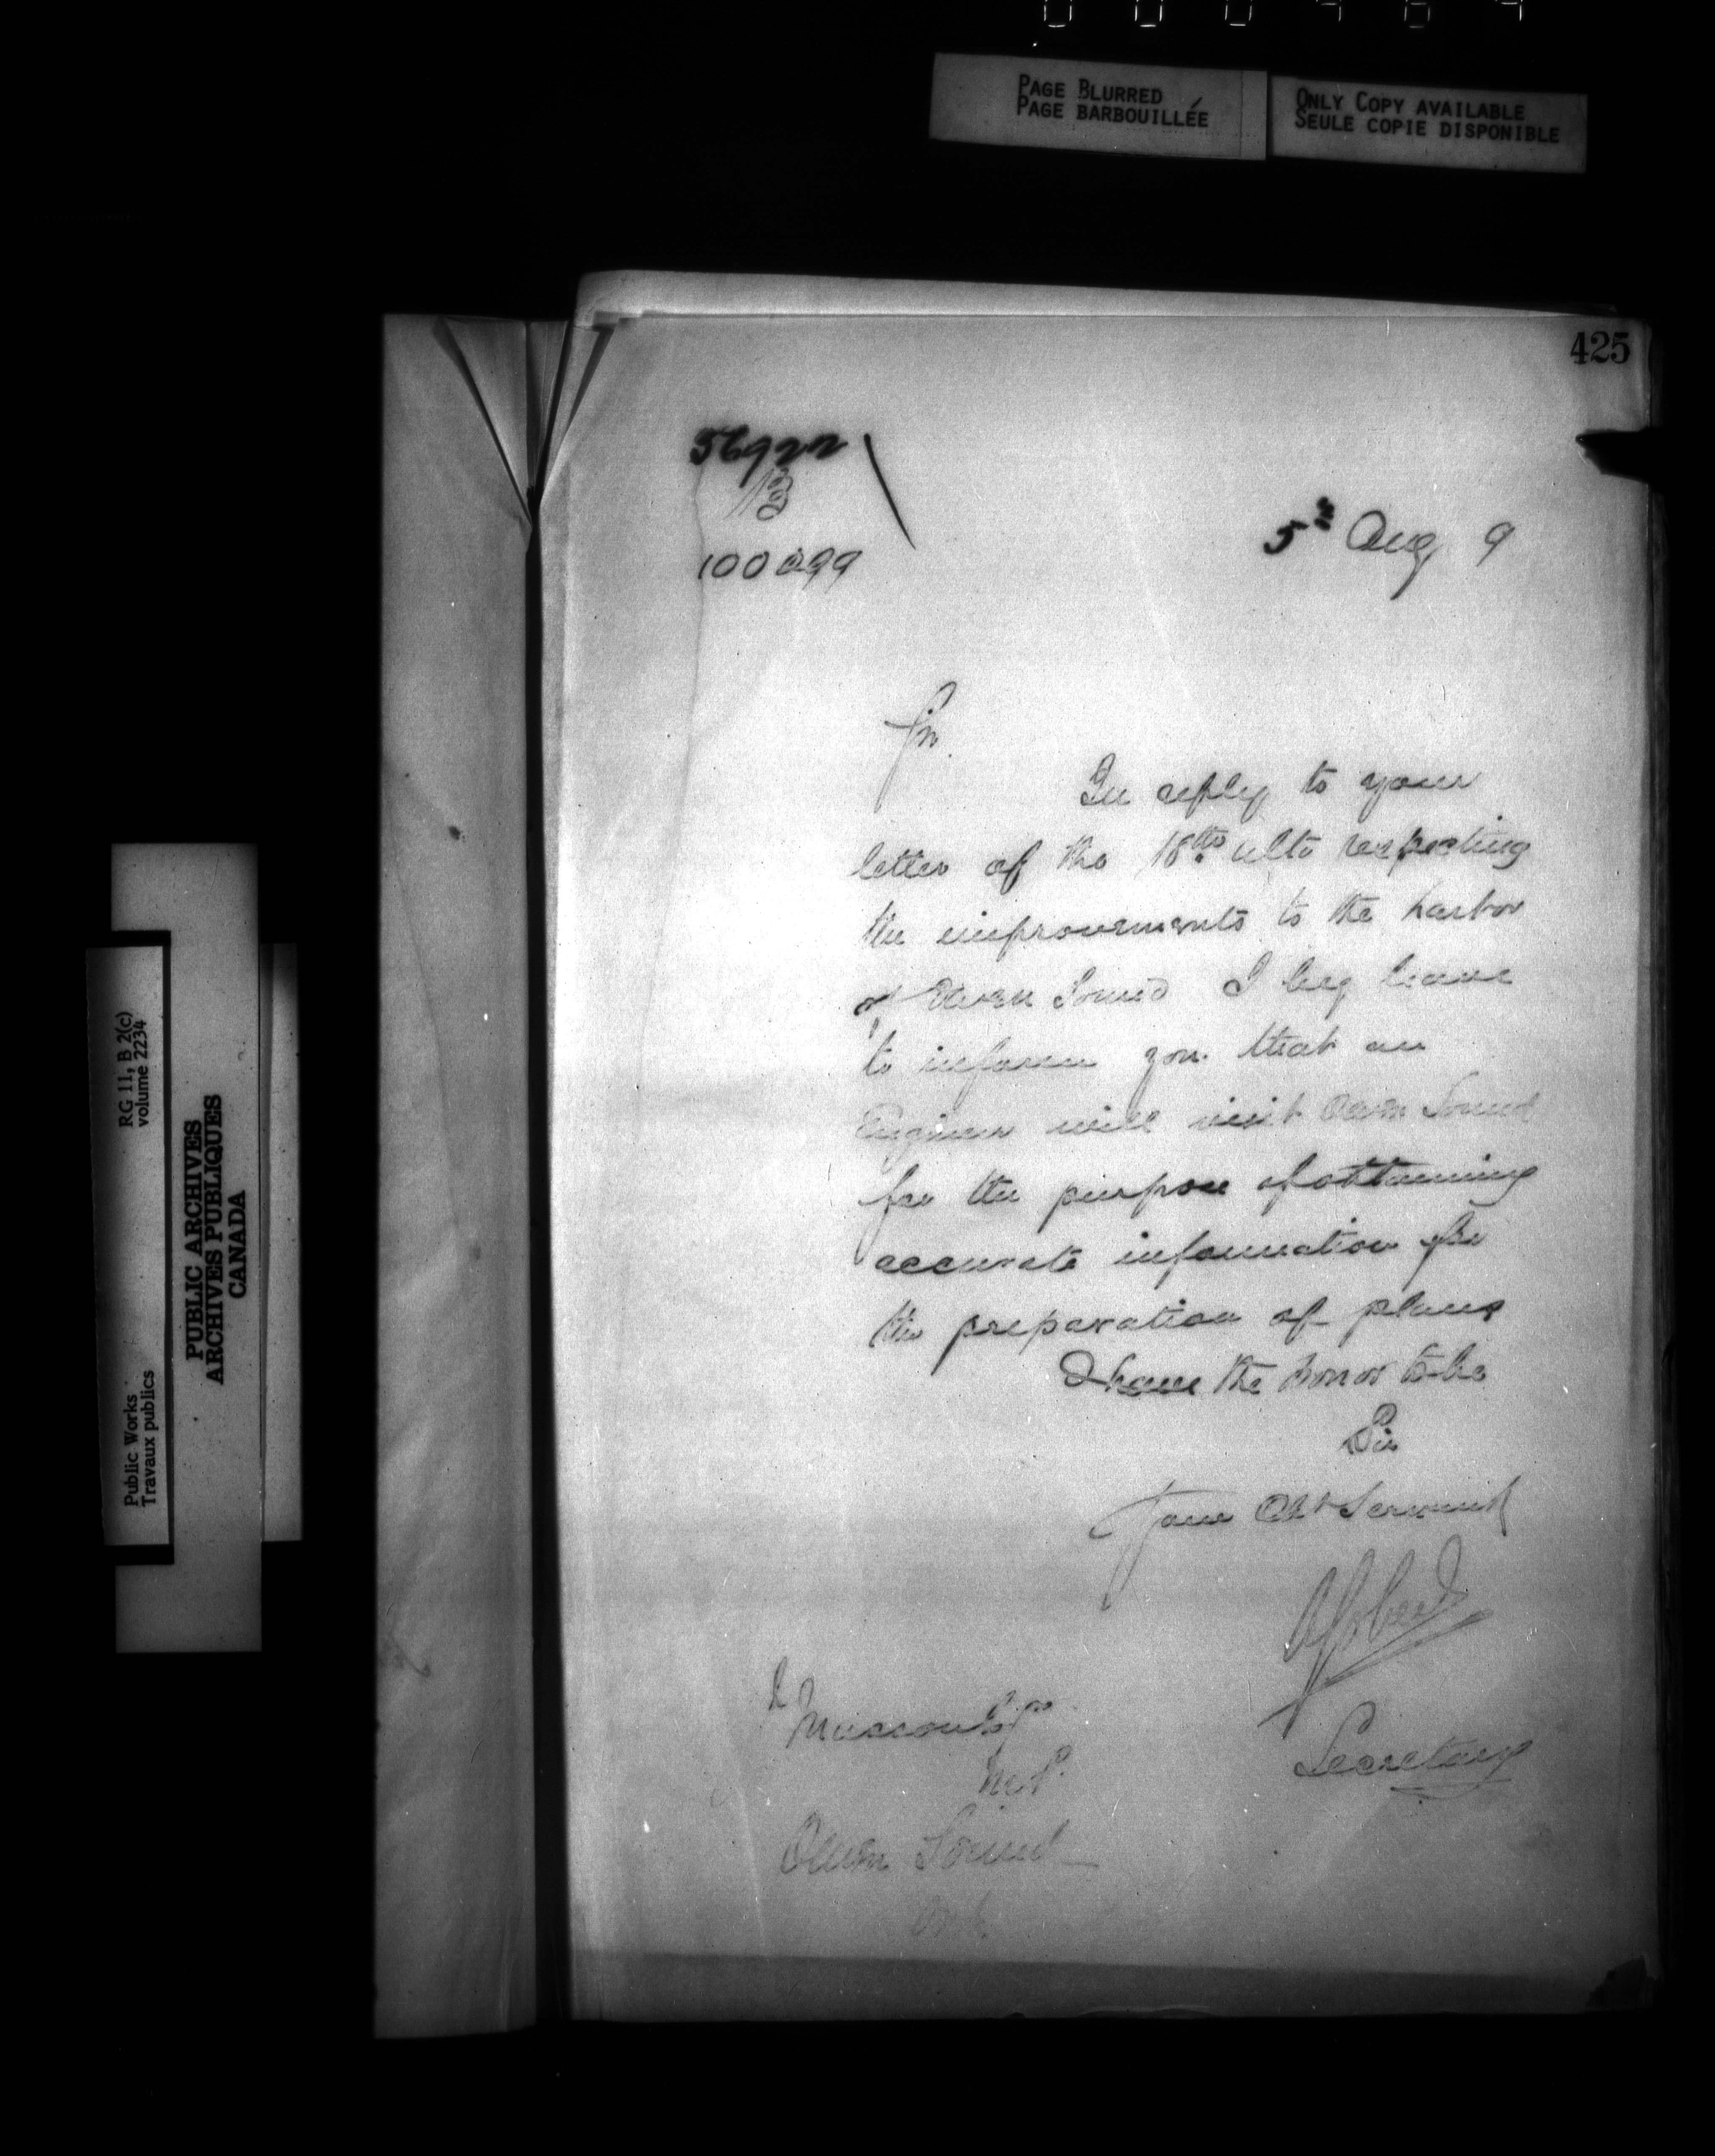 PAGE BLURRED
PAGE BARBOUILLÉE
ONLY COPY AVAILABLE
SEULE COPIE DISPONIBLE
425
56922
B
100299
5th Aug 9
Sir
In reply to your
letter of the 18th ulto respecting
the improvements to the harbor
of Owen Sound I beg leave
to inform you that an
Engineer will visit Owen Sound
for the purpose of obtaining
accurate information for
the preparation of plans
I have the honor to be
Sir
Your Obt Servant
Secretary
Esqre
M.P.
Owen Sound
Ont.
RG 11, B 2(c)
volume 2234
PUBLIC ARCHIVES
ARCHIVES PUBLIQUES
CANADA
Public Works
Travaux publics